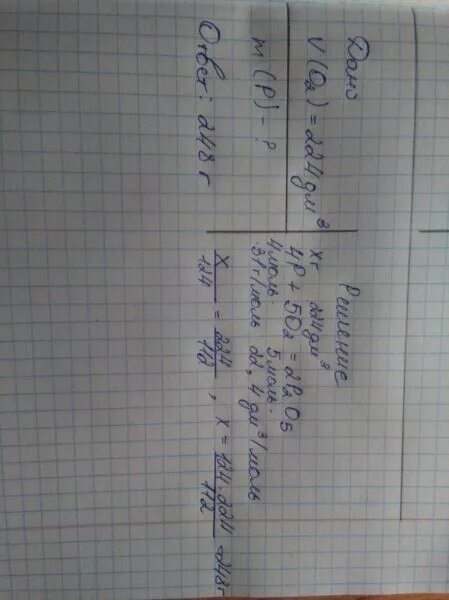 Дано
V(O₂) = 224 дм³
m (P) - ?
Ответ: 248 г
Решение
xг 224 дм³
4P + 5O₂ = 2P₂O₅
4 моль. 5 моль.
31г/моль 22,4 дм³/моль
x/124 = 224/112 , x = 124·224/112 = 248г